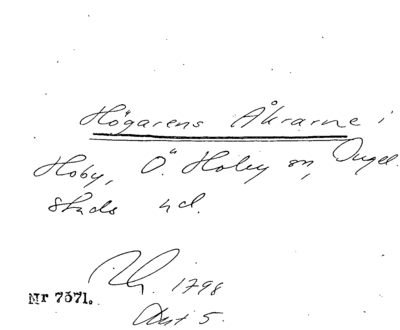 Högarens Åkrarne i
Hoby, Ö. Hoby sn, Ingel
stads hd.
1798
Nr 7371.
Akt 5.